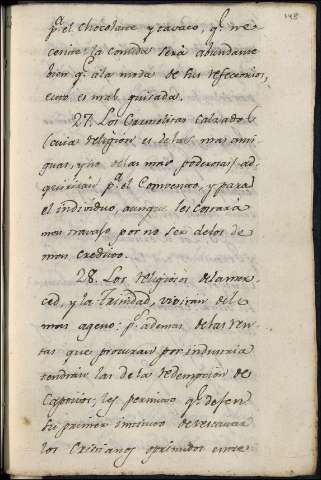 148
pª. el chocolate y tavaco, qe. ne
cesite: la comida será abundante
bien qe. á la moda de sus refectorios,
esto es mal guisada.
27. Los Carmelitas calzados
(cuia religion es de las mas anti
guas, y no de las mas poderosas) ad
quiriran pª. el Convento, y para
el individuo, aunque les costará
mas travajo por no ser de los de
mas credito.
28. Los religiosos de la mer
ced, y la Trinidad, vivirán del
mas ageno: pr. ademas de las ren
tas que procuran por industria
tendrán las de la redempcion de
Captivos; les permito qe. dejen
su primer instituto de rescatar
los Cristianos oprimidos entre